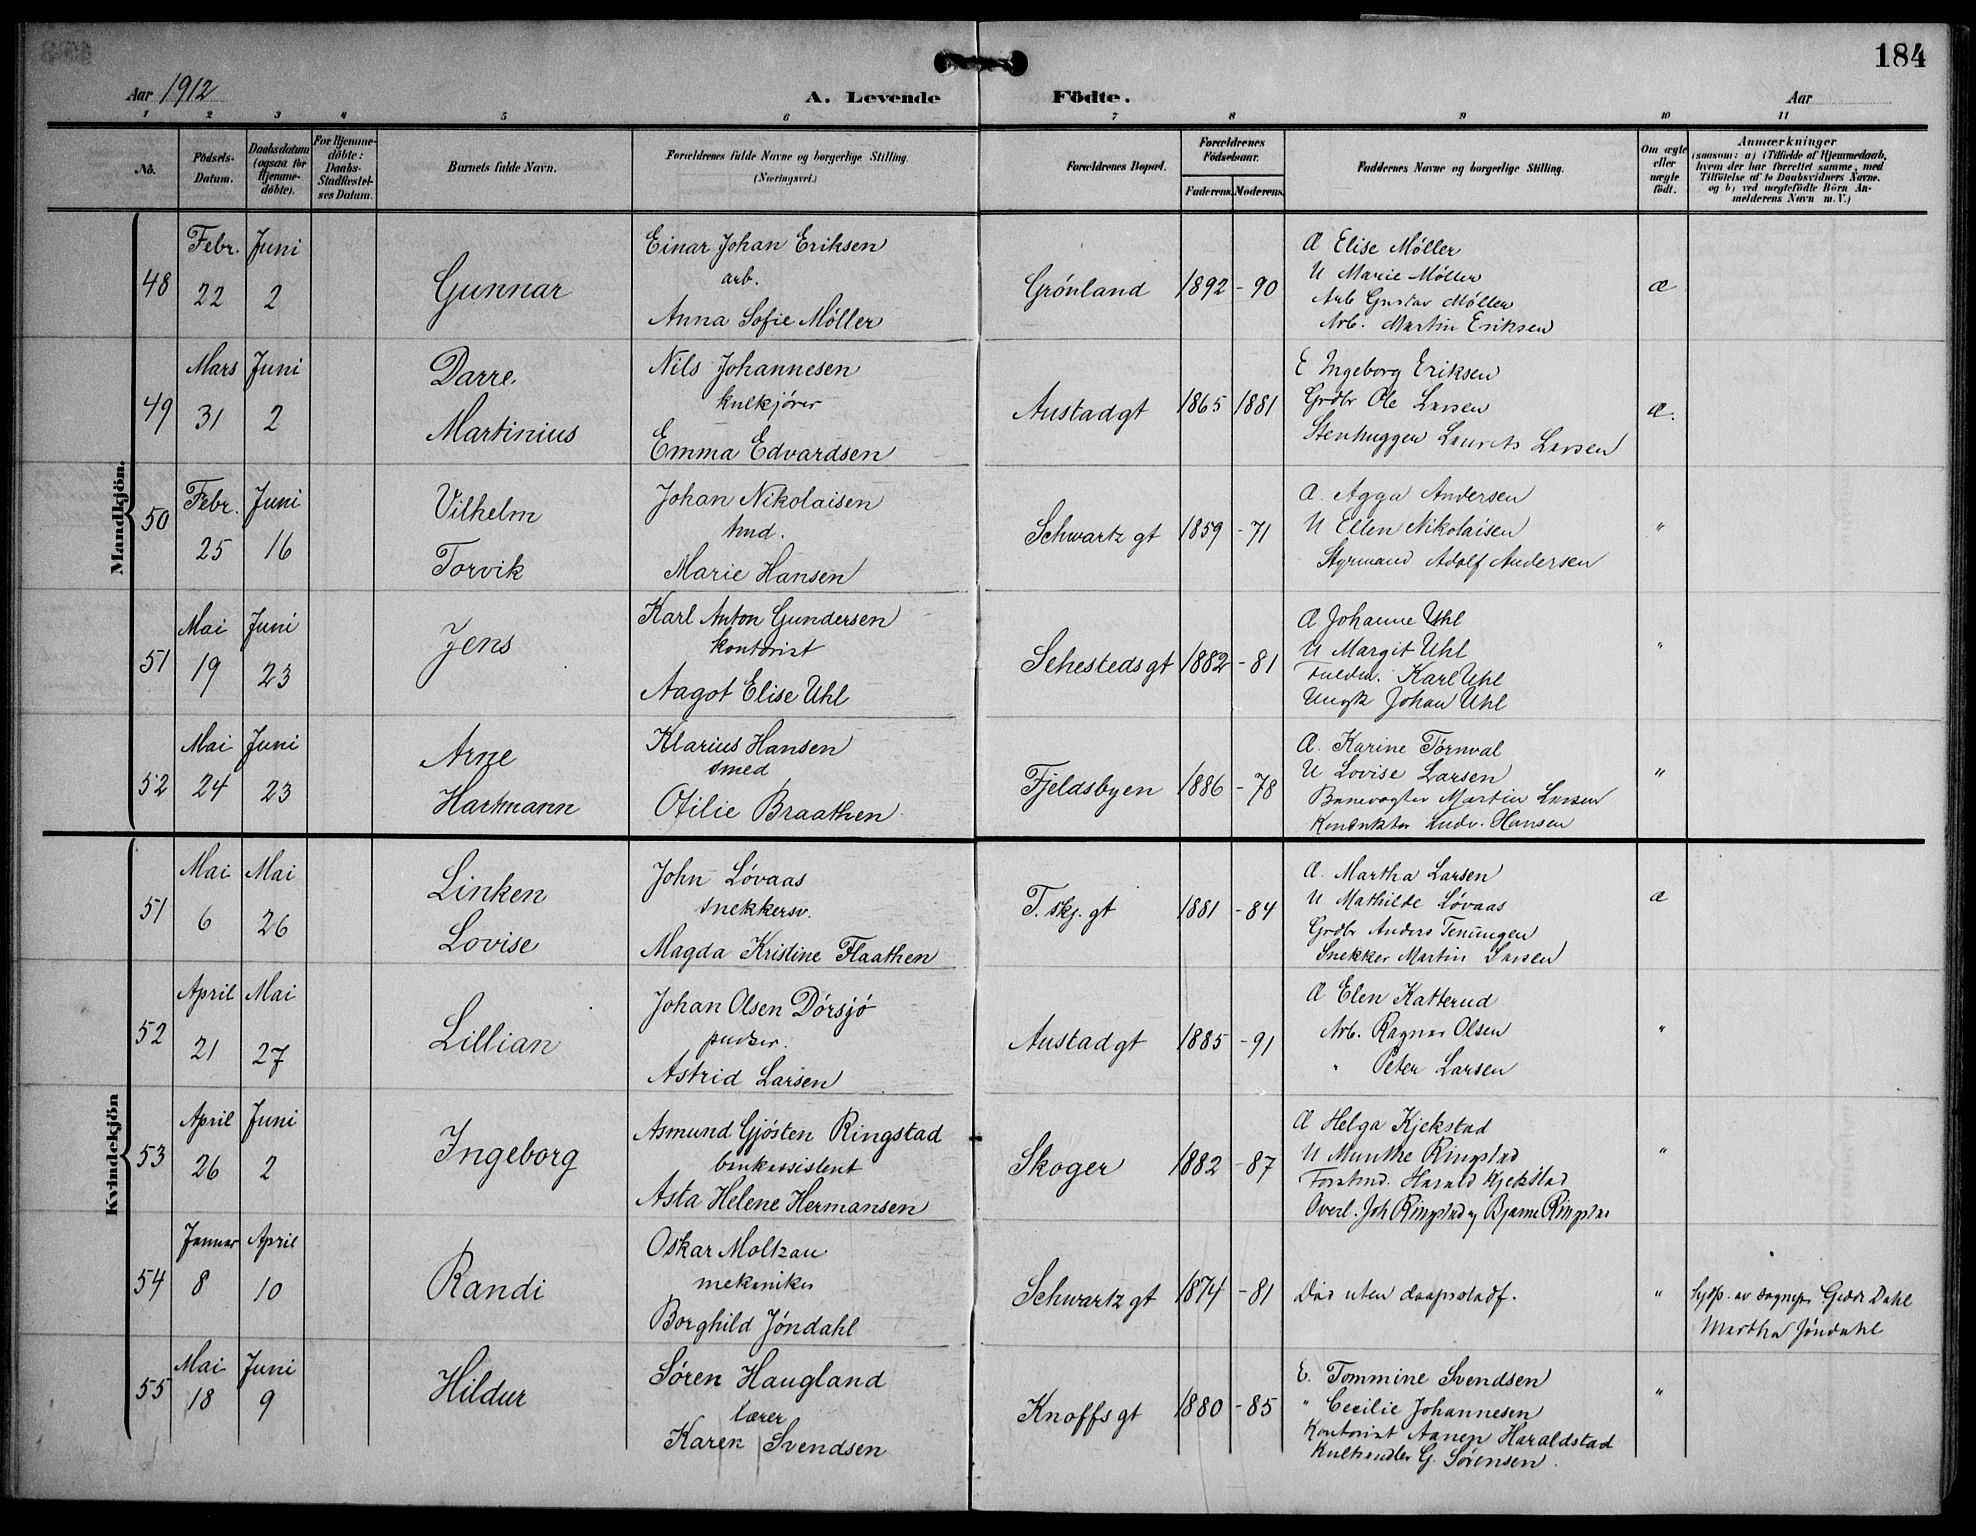 184
Aar 1912
A. Levende Födte.
Aar
1 2 3 4 5 6 7 8 9 10 11
No.
Födsels-Datum.
Daabsdatum (ogsaa for Hjemmedöbte).
For Hjemmedöbte: Daabs-Stadfæstelses Datum.
Barnets fulde Navn.
Forældrenes fulde Navne og borgerlige Stilling. (Næringsvei.)
Forældrenes Bopæl.
Forældrenes Födselsaar.
Faderens. Moderens.
Faddernes Navne og borgerlige Stilling.
Om ægte eller uægte födt.
Anmærkninger
(saasom: a) i Tilfælde af Hjemmedaab, hvem der har forrettet samme, med Tilföielse af to Daabsvidners Navne. og b) ved uægtefödte Börn Anmelderens Navn m. V.)
Mandkjön.
48 Febr. 22 Juni 2 Gunnar
Einar Johan Eriksen
arb.
Anna Sofie Møller
Grønland 1892 - 90
Æ Elise Møller
U Marie Møller
Arb Gustav Møller
Arb. Martin Eriksen
Æ
49 Mars 31 Juni 2 Darre. Martinius
Nils Johannesen
kulkjører
Emma Edvardsen
Austadgt 1865 1881
E Ingeborg Eriksen
Grdbr Ole Larsen
Stenhugger Laurits Larsen
Æ.
50 Febr. 25 Juni 16 Vilhelm Torvik
Johan Nikolaisen
tmd.
Marie Hansen
Schwartz gt 1859 - 71
Æ. Agga Andersen
U Ellen Nikolaisen
Styrmand Adolf Andersen
"
51 Mai 19 Juni 23 Jens
Karl Anton Gundersen
kontorist
Aagot Elise Uhl
Sehestedsgt 1882 - 81
Æ Johanne Uhl
U Margit Uhl
Karl Uhl
Ungk Johan Uhl
"
52 Mai 24 Juni 23 Arne Hartmann
Klarius Hansen
smed
Otilie Braathen
Fjeldsbyen 1886 - 78
Æ. Karine Tørnval
U Lovise Larsen
Banevogter Martin Larsen
Konduktør Ludv. Hansen
"
Kvindekjön
51 Mai 6 Mai 26 Linken Lovise
John Løvaas
snekkersv.
Magda Kristine Flaathen
T. skj. gt 1881 - 84
Æ. Martha Larsen
U Mathilde Løvaas
Grdbr Anders
Snekker Martin Larsen
Æ
52 April 21 Mai 27 Lillian
Johan Olsen Dørsjø
pudser.
Astrid Larsen
Austadgt 1885 - 91
Æ Elen Katterud
Arb. Ragnar Olsen
" Peter Larsen
"
53 April 26 Juni 2 Ingeborg
Asmund Gjøsten Ringstad
bankassistent
Asta Helene Hermansen
Skoger 1882 - 87
Æ Helga Kjekstad
U Munthe Ringstad
Forstmd. Harald Kjekstad
Overl. Joh Ringstad og Bjarne Ringstad
"
54 Januar 8 April 10 Randi
Oskar Moltzau
mekaniker
Borghild Jøndahl
Schwartz gt 1874 - 81
Død uten daapsstadf.
"
Hjdp. av sognepr Gedde Dahl
Martha Jøndahl
55 Mai 18 Juni 9 Hildur
Søren Haugland
lærer
Karen Svendsen
Knoffs gt 1880 - 85
E. Tommine Svendsen
" Cecilie Johannesen
Kontorist Aanen Haraldstad
Kulhandler G. Sørensen.
"